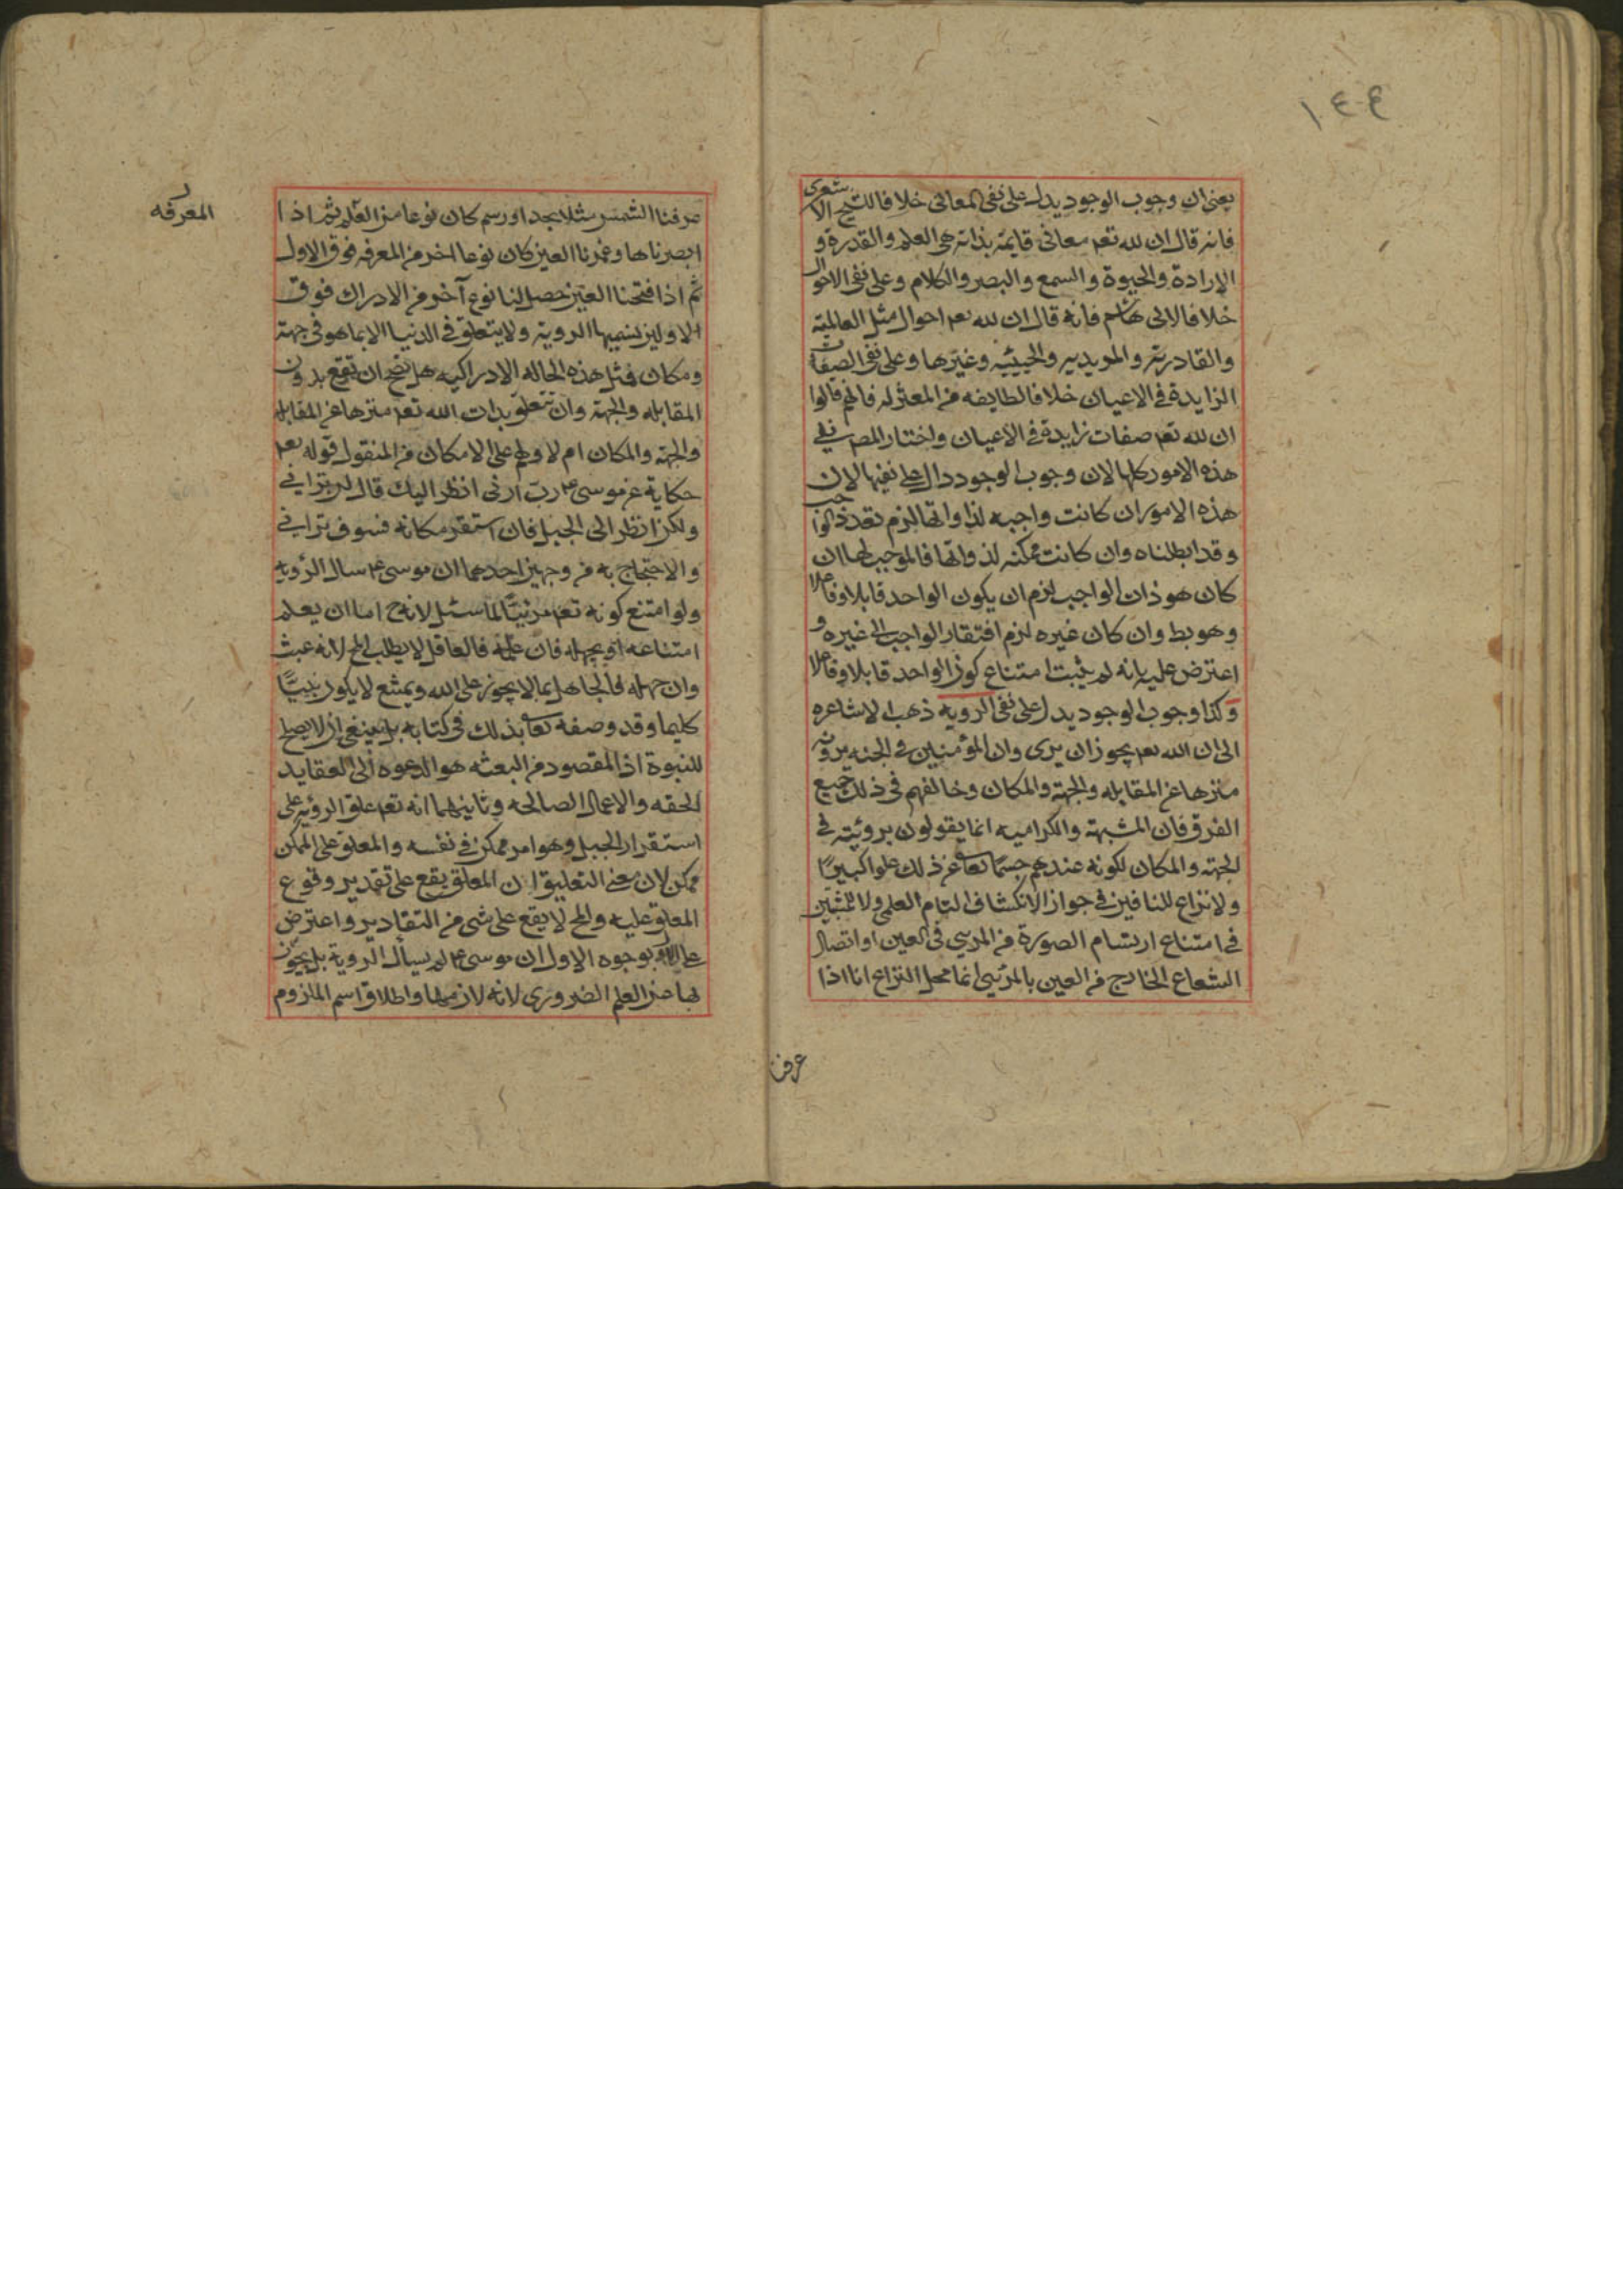 ١٤٤
يعنى ان وجوب الوجود يدل على نفى المعانى خلافا للشيخ الاشعرى
فانه قال ان لله تعم معانى قايمة بذاته هى العلم والقدرة و
الارادة والحيوة والسمع والبصر والكلام وعلى نفى الاحوال
خلافا لابى هاشم فانه قال ان لله تعم احوال مثل العالمية
والقادرية والمريدية والحيية وغيرها وعلى نفى الصفات
الزايدة فى الاعيان خلافا لطايفه من المعتزله فانهم قالوا
ان لله تعم صفات زايدة فى الاعيان واختار المصر نفى
هذه الامور كلها لان وجوب الوجود دال على نفيها لان
هذه الامور ان كانت واجبه لذواتها لزم تعدد الواجب
وقد ابطلناه وان كانت ممكنه لذواتها فالموجب لها ان
كان هو ذات الواجب لزم ان يكون الواحد قابلا وفاعلا
وهو بط وان كان غيره لزم افتقار الواجب الى غيره و
اعترض عليه بانه لم يثبت امتناع كون الواحد قابلا وفاعلا
وكذا وجوب الوجود يدل على نفى الرويه ذهب الاشاعره
الى ان الله تعم يجوز ان يرى وان المؤمنين فى الجنه يرونه
منزها عن المقابله والجهة والمكان وخالفهم فى ذلك جميع
الفرق فان المشبهة والكراميه انما يقولون برويته فى
الجهة والمكان لكونه عندهم جسما تعا عن ذلك علوا كبيرا
ولا نزاع للنافين فى جواز الانكشاف التام العلمى ولا للمثبتين
فى امتناع ارتسام الصورة من المرئى فى العين او اتصال
الشعاع الخارج من العين بالمرئى انما محل النزاع انا اذا
عرفنا
عرفنا الشمس مثلا بحد او رسم كان نوعا من العلم ثم اذا
المعرفه
ابصرناها وغمضنا العين كان نوعا اخر من المعرفه فوق الاول
ثم اذا فتحنا العين حصل لنا نوع آخر من الادراك فوق
الاولين نسميها الروية ولا يتعلق فى الدنيا الا بما هو فى جهة
ومكان فمثل هذه الحاله الادراكيه هل تصح ان تقع بدون
المقابله والجهة وان تتعلق بذات الله تعم منزها عن المقابله
والجهة والمكان ام لا ولهم على الامكان من المنقول قوله تعم
حكاية عن موسى ع رب ارنى انظر اليك قال لن ترانى
ولكن انظر الى الجبل فان استقر مكانه فسوف ترانى
والاحتجاج به من وجهين احدهما ان موسى ع سال الرؤيه
ولو امتنع كونه تعم مرئيا لما سئل لانه ح اما ان يعلم
امتناعه او يجهله فان علمه فالعاقل لا يطلب المح لانه عبث
وان جهله فالجاهل بما لا يجوز على الله ويمتنع لا يكون نبيا
كليما وقد وصفه تعا بذلك فى كتابه بل ينبغى ان لا يصلح
للنبوة اذ المقصود من البعثه هو الدعوه الى العقايد
الحقه والاعمال الصالحه وثانيهما انه تعم علق الرؤيه على
استقرار الجبل وهو امر ممكن فى نفسه والمعلق على الممكن
ممكن لان معنى التعليق ان المعلق يقع على تقدير وقوع
المعلق عليه والمح لا يقع على شى من التقادير واعترض
على الاول بوجوه الاول ان موسى ع لم يسأل الروية بل تجوز
بها عن العلم الضرورى لانه لازمها واطلاق اسم الملزوم